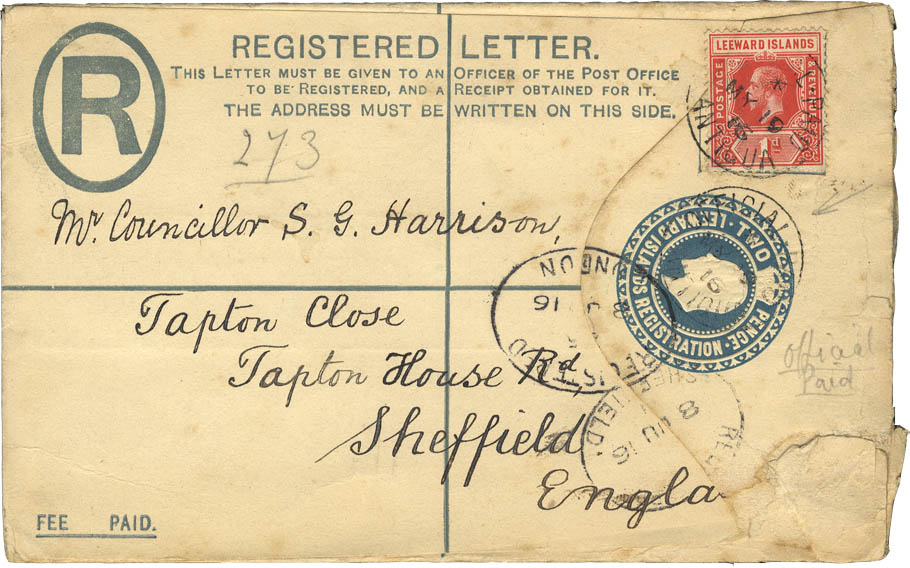 R
REGISTERED LETTER.
THIS LETTER MUST BE GIVEN TO AN OFFICER OF THE POST OFFICE
TO BE REGISTERED, AND A RECEIPT OBTAINED FOR IT.
THE ADDRESS MUST BE WRITTEN ON THIS SIDE.
LEEWARD ISLANDS
POSTAGE
& REVENUE
1d
ANTIGUA
273
Mr. Councillor S. G. Harrison,
Tapton Close
Tapton House Rd,
Sheffield
Engla
TWO PENCE · LEEWARD ISLANDS REGISTRATION ·
OFFICIAL
LONDON
8 JU 16
REGISTERED
SHEFFIELD
8 JU 16
Official
Paid
FEE PAID.